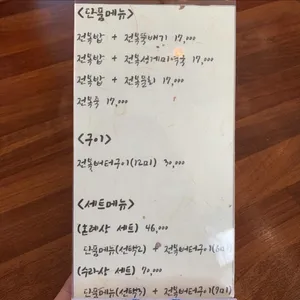 <단품메뉴>
전복밥 + 전복뚝배기 17,000
전복밥 + 전복성게미역국 17,000
전복밥 + 전복물회 17,000
전복죽 17,000
<구이>
전복버터구이(12미) 30,000
<세트메뉴>
(혼례상 세트) 46,000
단품메뉴(선택2) + 전복버터구이
(수라상 세트) 70,000
단품메뉴(선택3) + 전복버터구이(9미)